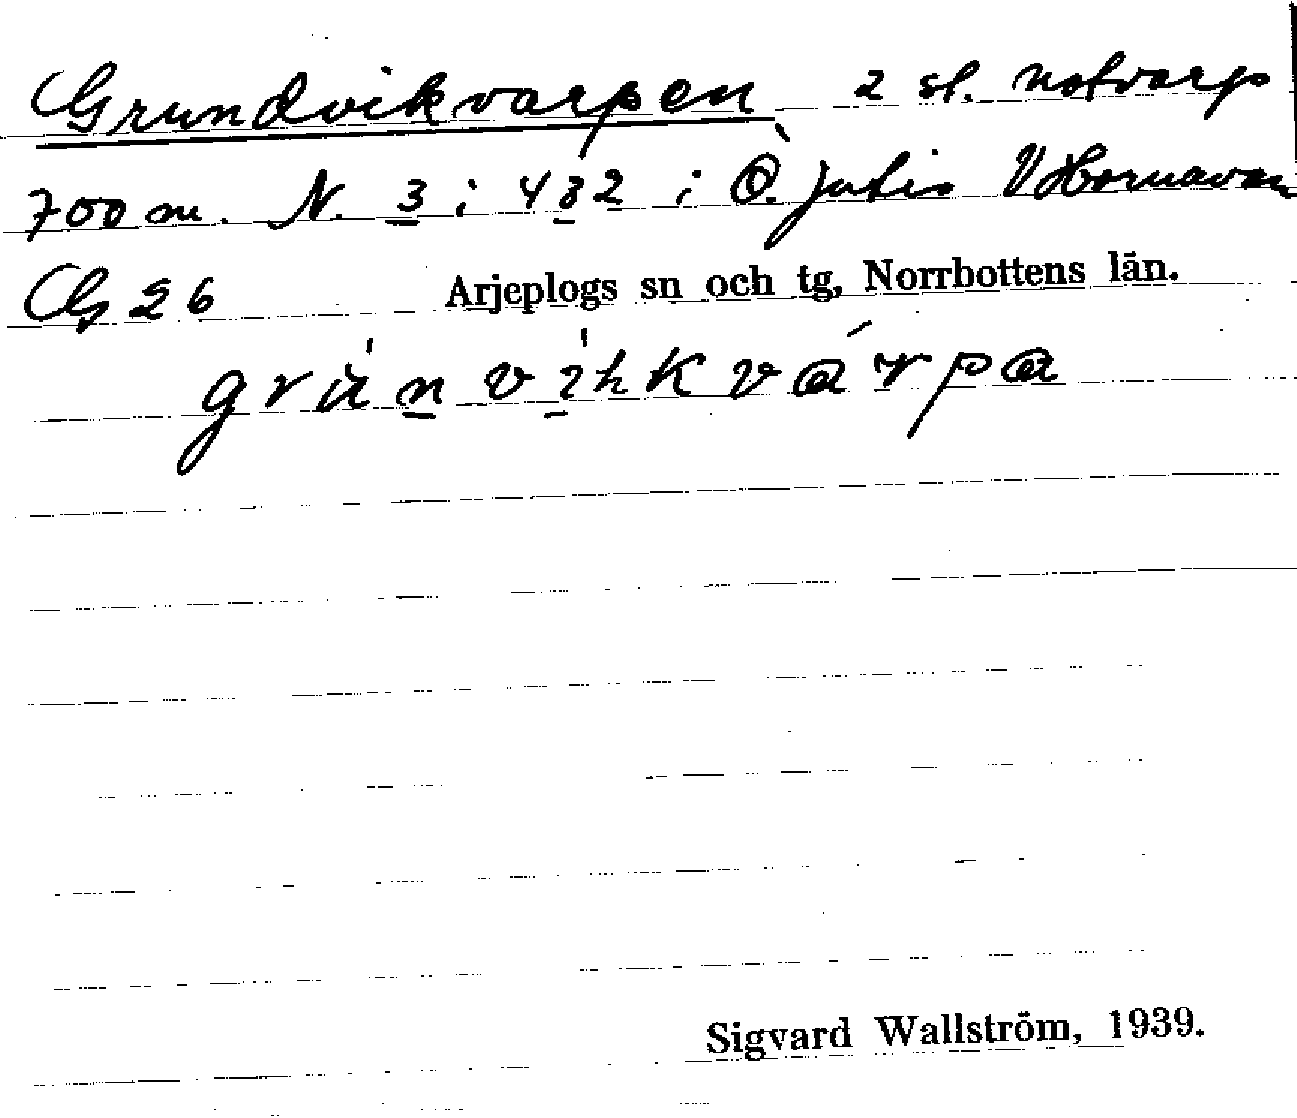 Grundvikvarpen 2 st. notvarp
700 m. N. 3 i 432 i Ö. Jutis V Hornavan
Cg 26 Arjeplogs sn och tg, Norrbottens län.
grúnvíhkvárpa
Sigvard Wallström, 1939.